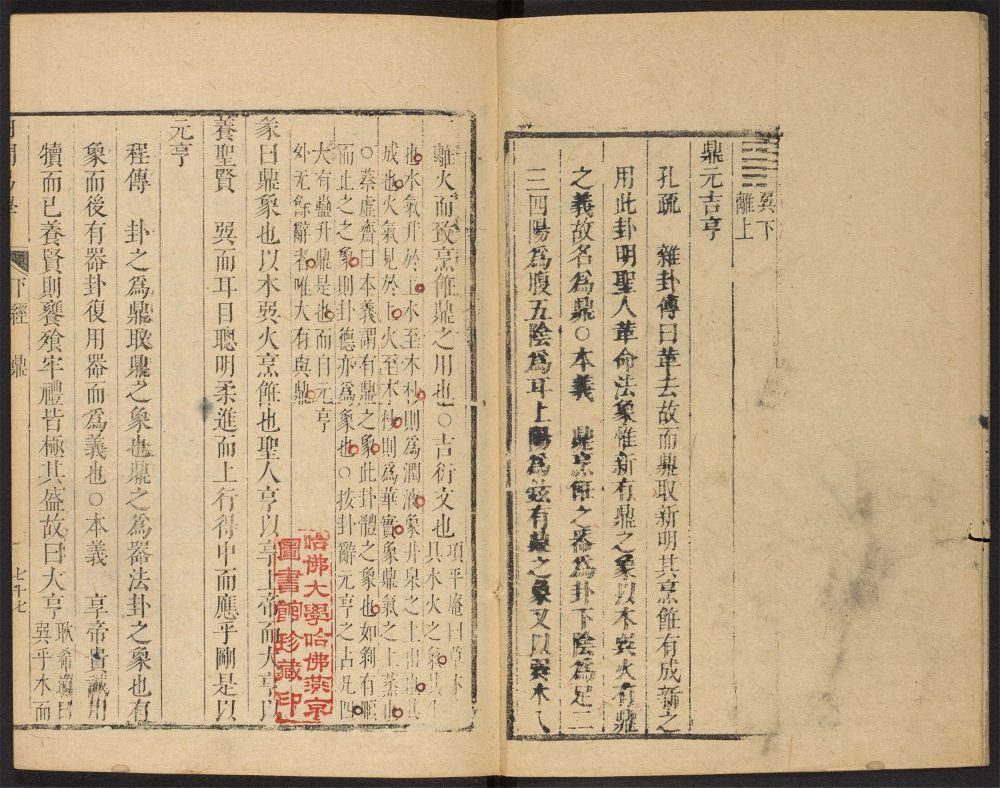 巽下
離上
鼎元吉亨
孔疏　雜卦傳曰革去故而鼎取新明其烹飪有成新之
用此卦明聖人革命法象惟新有鼎之象以木巽火有鼎
之義故名爲鼎○本義　鼎烹飪之器爲卦下陰爲足二
三四陽爲腹五陰爲耳上陽爲鉉有鼎之象又以巽木入
離火而致烹飪鼎之用也○吉衍文也
項平庵曰草木
具水火之氣
也水氣升於上水至木杪則爲潤液象井泉之上出
成也火氣見於上火至木杪則爲華實象鼎氣之上蒸也
○蔡虛齋曰本義謂有鼎之象此卦體之象也如剝有順
而止之之象則卦德亦爲象也○按卦辭元亨之占凡四
大有蠱升鼎是也而自元亨
外无餘辭者唯大有與鼎
彖曰鼎象也以木巽火亨飪也聖人亨以享上帝而大亨以
養聖賢　巽而耳目聰明柔進而上行得中而應乎剛是以
元亨
程傳　卦之爲鼎取鼎之象也鼎之爲器法卦之象也有
象而後有器卦復用器而爲義也○本義　享帝貴誠用
犢而已養賢則饔飧牢禮皆極其盛故曰大亨
耿希道曰
巽乎水而
下經　鼎
七十七
哈佛大學哈佛燕京
圖書館珍藏印